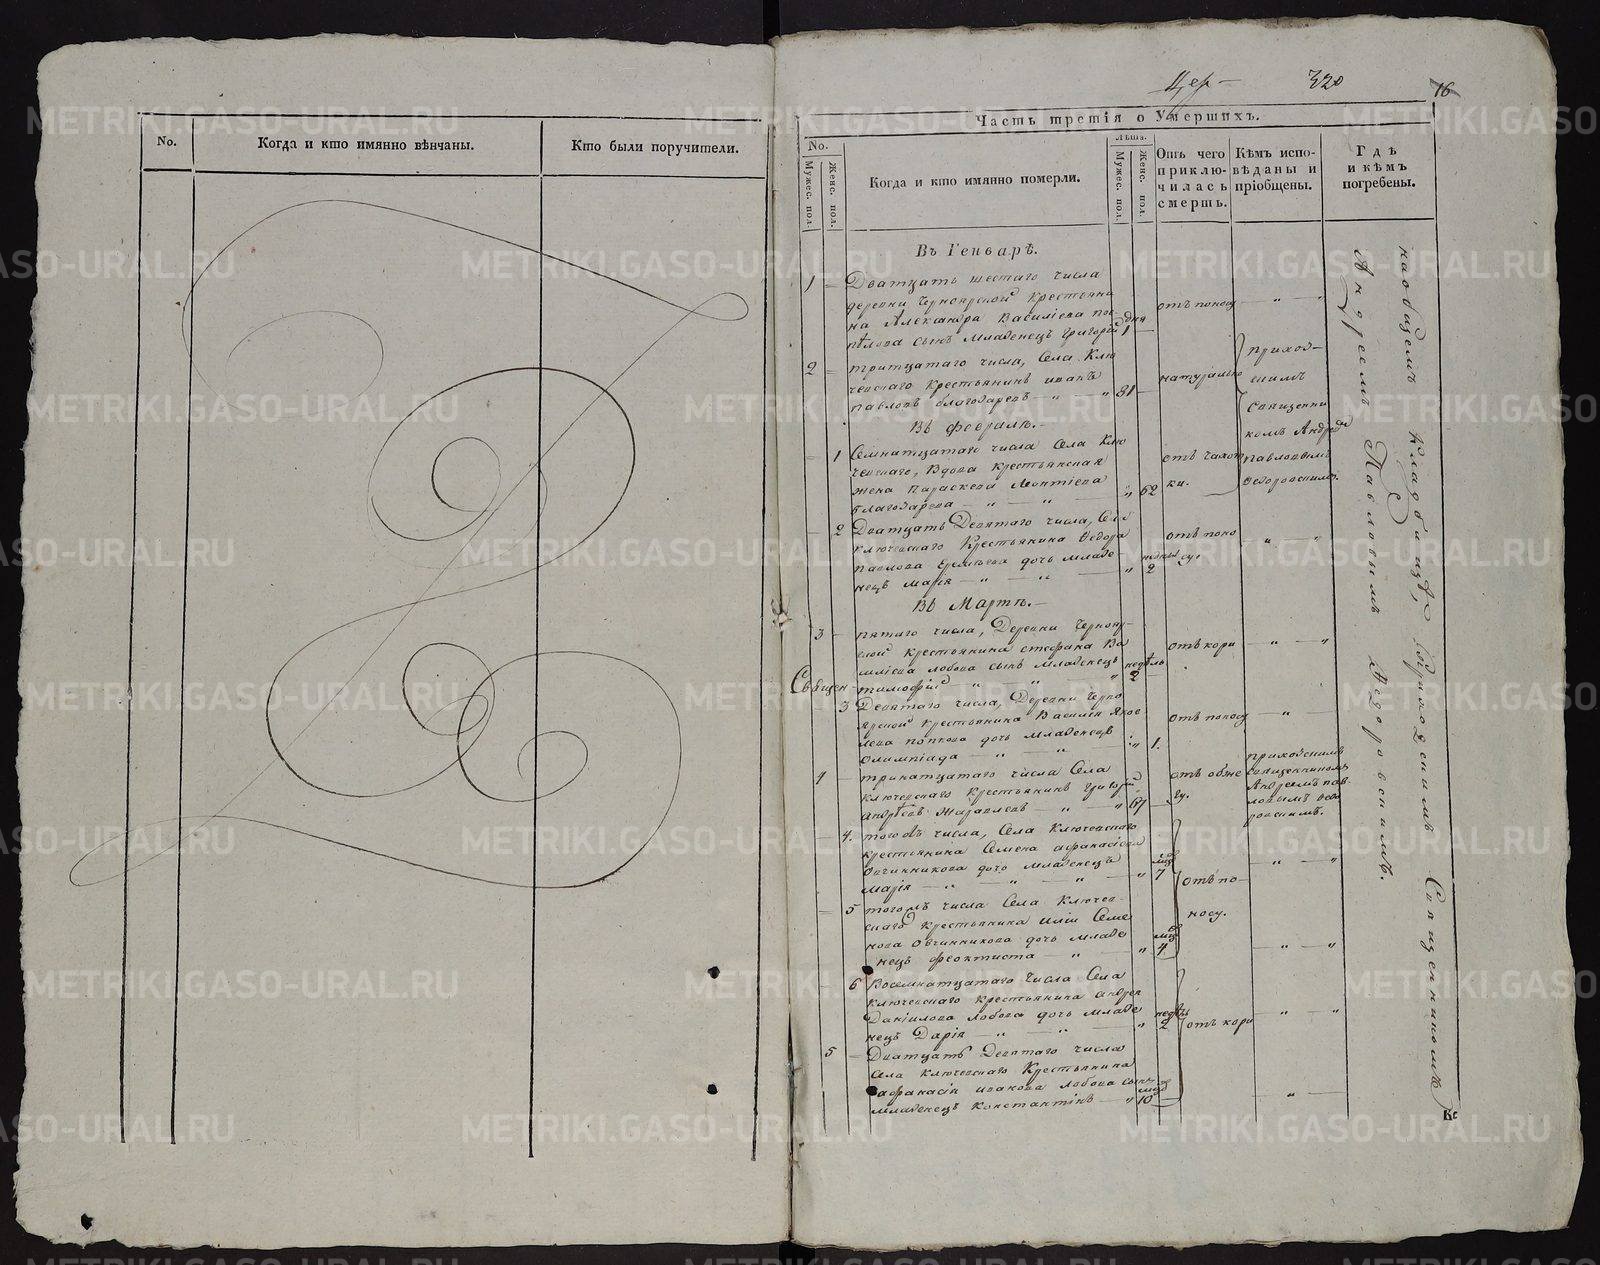 No.
Когда и кто имянно вѣнчаны.
Кто были поручители.
320
16
Часть третія о Умершихъ.
No.
Мужес. пол.
Женс. пол.
Когда и кто имянно померли.
Лѣта.
Мужес. пол.
Женс. пол.
Отъ чего приключилась смерть.
Кѣмъ исповѣданы и пріобщены.
Гдѣ и кѣмъ погребены.
Въ Генварѣ.
1
Дватцать шестаго числа
деревни Черноярской крестьяни
на Александра Василіева
сынъ младенецъ Григорій
дня 1
отъ поносу
2
тритцатаго числа, Села Клю
чевскаго крестьянинъ иванъ
павловъ благодаревъ
81
натурально
приход-
скимъ
священни
комъ Андреемъ
павловымъ
Ѳедоровскимъ.
Въ Февралѣ.
1
Семнатцатаго числа Села Клю
чевскаго, вдова крестьянская
жена Параскева Леонтіева
благодарева
62
отъ чахот
ки.
2
Дватцать Девятаго числа, Села
ключевскаго Крестьянина Ѳедора
павлова дочь младе
нецъ Марія
2
отъ поно
су.
Въ Мартѣ.
3
пятаго числа, Деревни Чернояр-
ской крестьянина стефана Ва
силіева лобова сынъ младенецъ
тимофій
недѣль 2
отъ кори
3
Девятаго числа, Деревни Черно
ярской крестьянина Василія Яков
лева попкова дочь младенецъ
Олимпіада
1.
отъ поносу
4
тринатцатаго числа Села
ключевскаго крестьянинъ григорій
андрѣевъ Журавлевъ
67
приходскимъ
священникомъ
Андреемъ пав
ловымъ ѳедо
ровскимъ.
4.
тогожъ числа, Села Ключевскаго
крестьянина Семена афанасіева
Овчинникова дочь младенецъ
Марія
7
отъ по-
носу.
5
тогожъ числа Села Ключев-
скаго крестьянина иліи Семе
нова Овчинникова дочь младе
нецъ феоктиста
4
6
Восемнатцатаго числа Села
ключевскаго крестьянина андрея
Даніилова лобова дочь младе
нецъ Дарія
2
отъ кори
5
Дватцать Девятаго числа
села ключевскаго Крестьянина
афанасія иванова лобова сынъ
младенецъ константинъ
10
на общемъ кладбищѣ, приходскимъ Священникомъ
Андреемъ Павловымъ Ѳедоровскимъ.
METRIKI.GASO-URAL.RU